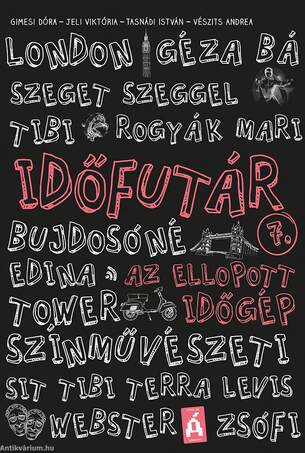 GIMESI DÓRA – JELI VIKTÓRIA – TASNÁDI ISTVÁN – VÉSZITS ANDREA
LONDON GÉZA BÁ
SZEGET SZEGGEL
TIBI ROGYÁK MARI
IDŐFUTÁR
BUJDOSÓNÉ 7.
EDINA AZ ELLOPOTT
TOWER IDŐGÉP
SZÍNMŰVÉSZETI
SIT TIBI TERRA LEVIS
WEBSTER Á ZSÓFI
Antikvárium.hu